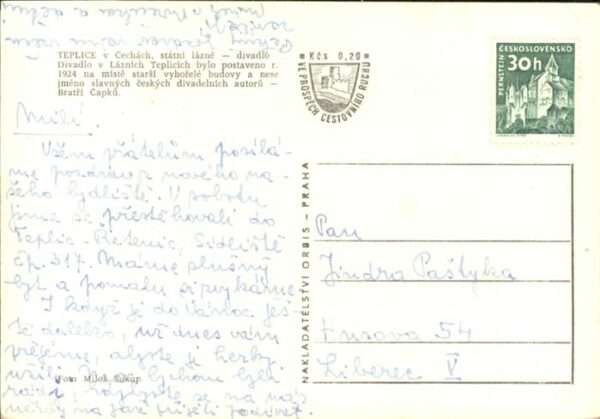 TEPLICE v Čechách, státní lázně — divadlo
Divadlo v Lázních Teplicích bylo postaveno r.
1924 na místě starší vyhořelé budovy a nese
jméno slavných českých divadelních autorů —
Bratří Čapků.
Kčs 0,20
VE PROSPĚCH CESTOVNÍHO RUCHU
ČESKOSLOVENSKO
30h
PERNŠTEJN
Milí!
Všem přátelům posílá-
me pozdrav z nového na-
šeho bydliště. V sobotu
jsme se přestěhovali do
Teplic-Řetenic, Sídliště
čp. 317. Máme slušný
byt a pomalu si zvykáme
I když je do Vánoc ješ-
tě daleko, už dnes vám
přejeme, abyste je hezky
užili.
rádi,
na jaře příští
Foto Miloš
NAKLADATELSTVÍ ORBIS - PRAHA
Pan
Jindra Paštyka
54
Liberec V